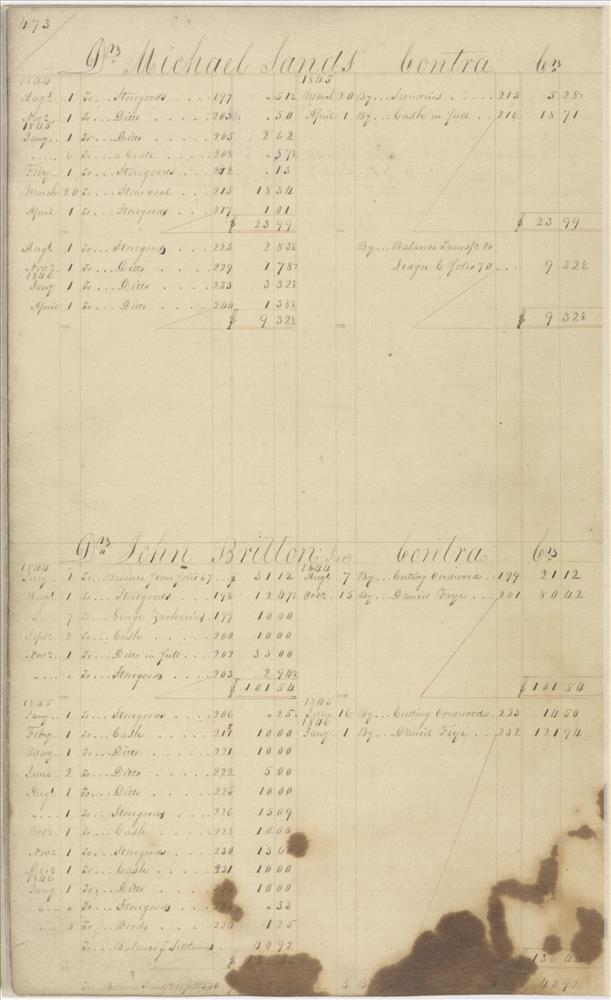 473
Dr Michael Sands Contra Cr
1844 1845
Augt 1 To... Storegoods .... 197 .51½ March 20 By... Sundries ..... 215 5 28
Novr 1 To... Ditto ..... 203 .50 April 1 By... Cash in full ... 216 18 71
1845
Jany 1 To... Ditto ..... 205 2 62
" 6 To... a Crate ..... 208 .57½
Feby 1 To... Storegoods .... 212 .13
March 20 To... 215 18 34
April 1 To... Storegoods .... 217 1 01
$ 23 99 $ 23 99
Augt 1 To... Storegoods .... 225 2 83½ By... Balance Transfd to
Novr 1 To... Ditto ..... 229 1 78 Ledger 6 folio 70 ... 9 32½
1846
Jany 1 To... Ditto ..... 233 3 32½
April 1 To... Ditto ..... 244 1 38½
$ 9 32½ $ 9 32½
Dr John Britton Contra Cr
1844 1844
July 1 To... Balance from folio 67 .. $ 31 12 Augt 7 By... Cutting Cordwood .. 199 21 12
Augt 1 To... Storegoods .... 198 12 47½ Octr 15 By... Daniel Frye ... 201 80 42
" 7 To... George Zacharias 199 10 00
Septr 2 To... Cash ..... 200 10 00
Novr 1 To... Ditto in full ... 202 35 00
" " To... Storegoods .... 203 2 94½
$ 101 54 $ 101 54
1845 1845
Jany 1 To... Storegoods .... 206 .25 June 16 By... Cutting Cordwood .. 223 14 50
1846
Feby 1 To... Cash ..... 211 10 00 Jany 1 By... Daniel Frye ... 232 121 94
May 1 To... Ditto ..... 221 10 00
June 2 To... Ditto ..... 222 5 00
Augt 1 To... Ditto ..... 225 10 00
" 1 To... Storegoods .... 226 15 09
Octr 1 To... Cash ..... 228 10 00
Novr 1 To... Storegoods .... 230 13 6
Decr 1 To... Cash ..... 231 10 00
1846
Jany 1 To... Ditto ..... 10 00
" " To... Storegoods .... .33
" 5 To... 234 1 25
To... Balance 40 92
$ 136 44
To... Balance 5 By 40 92